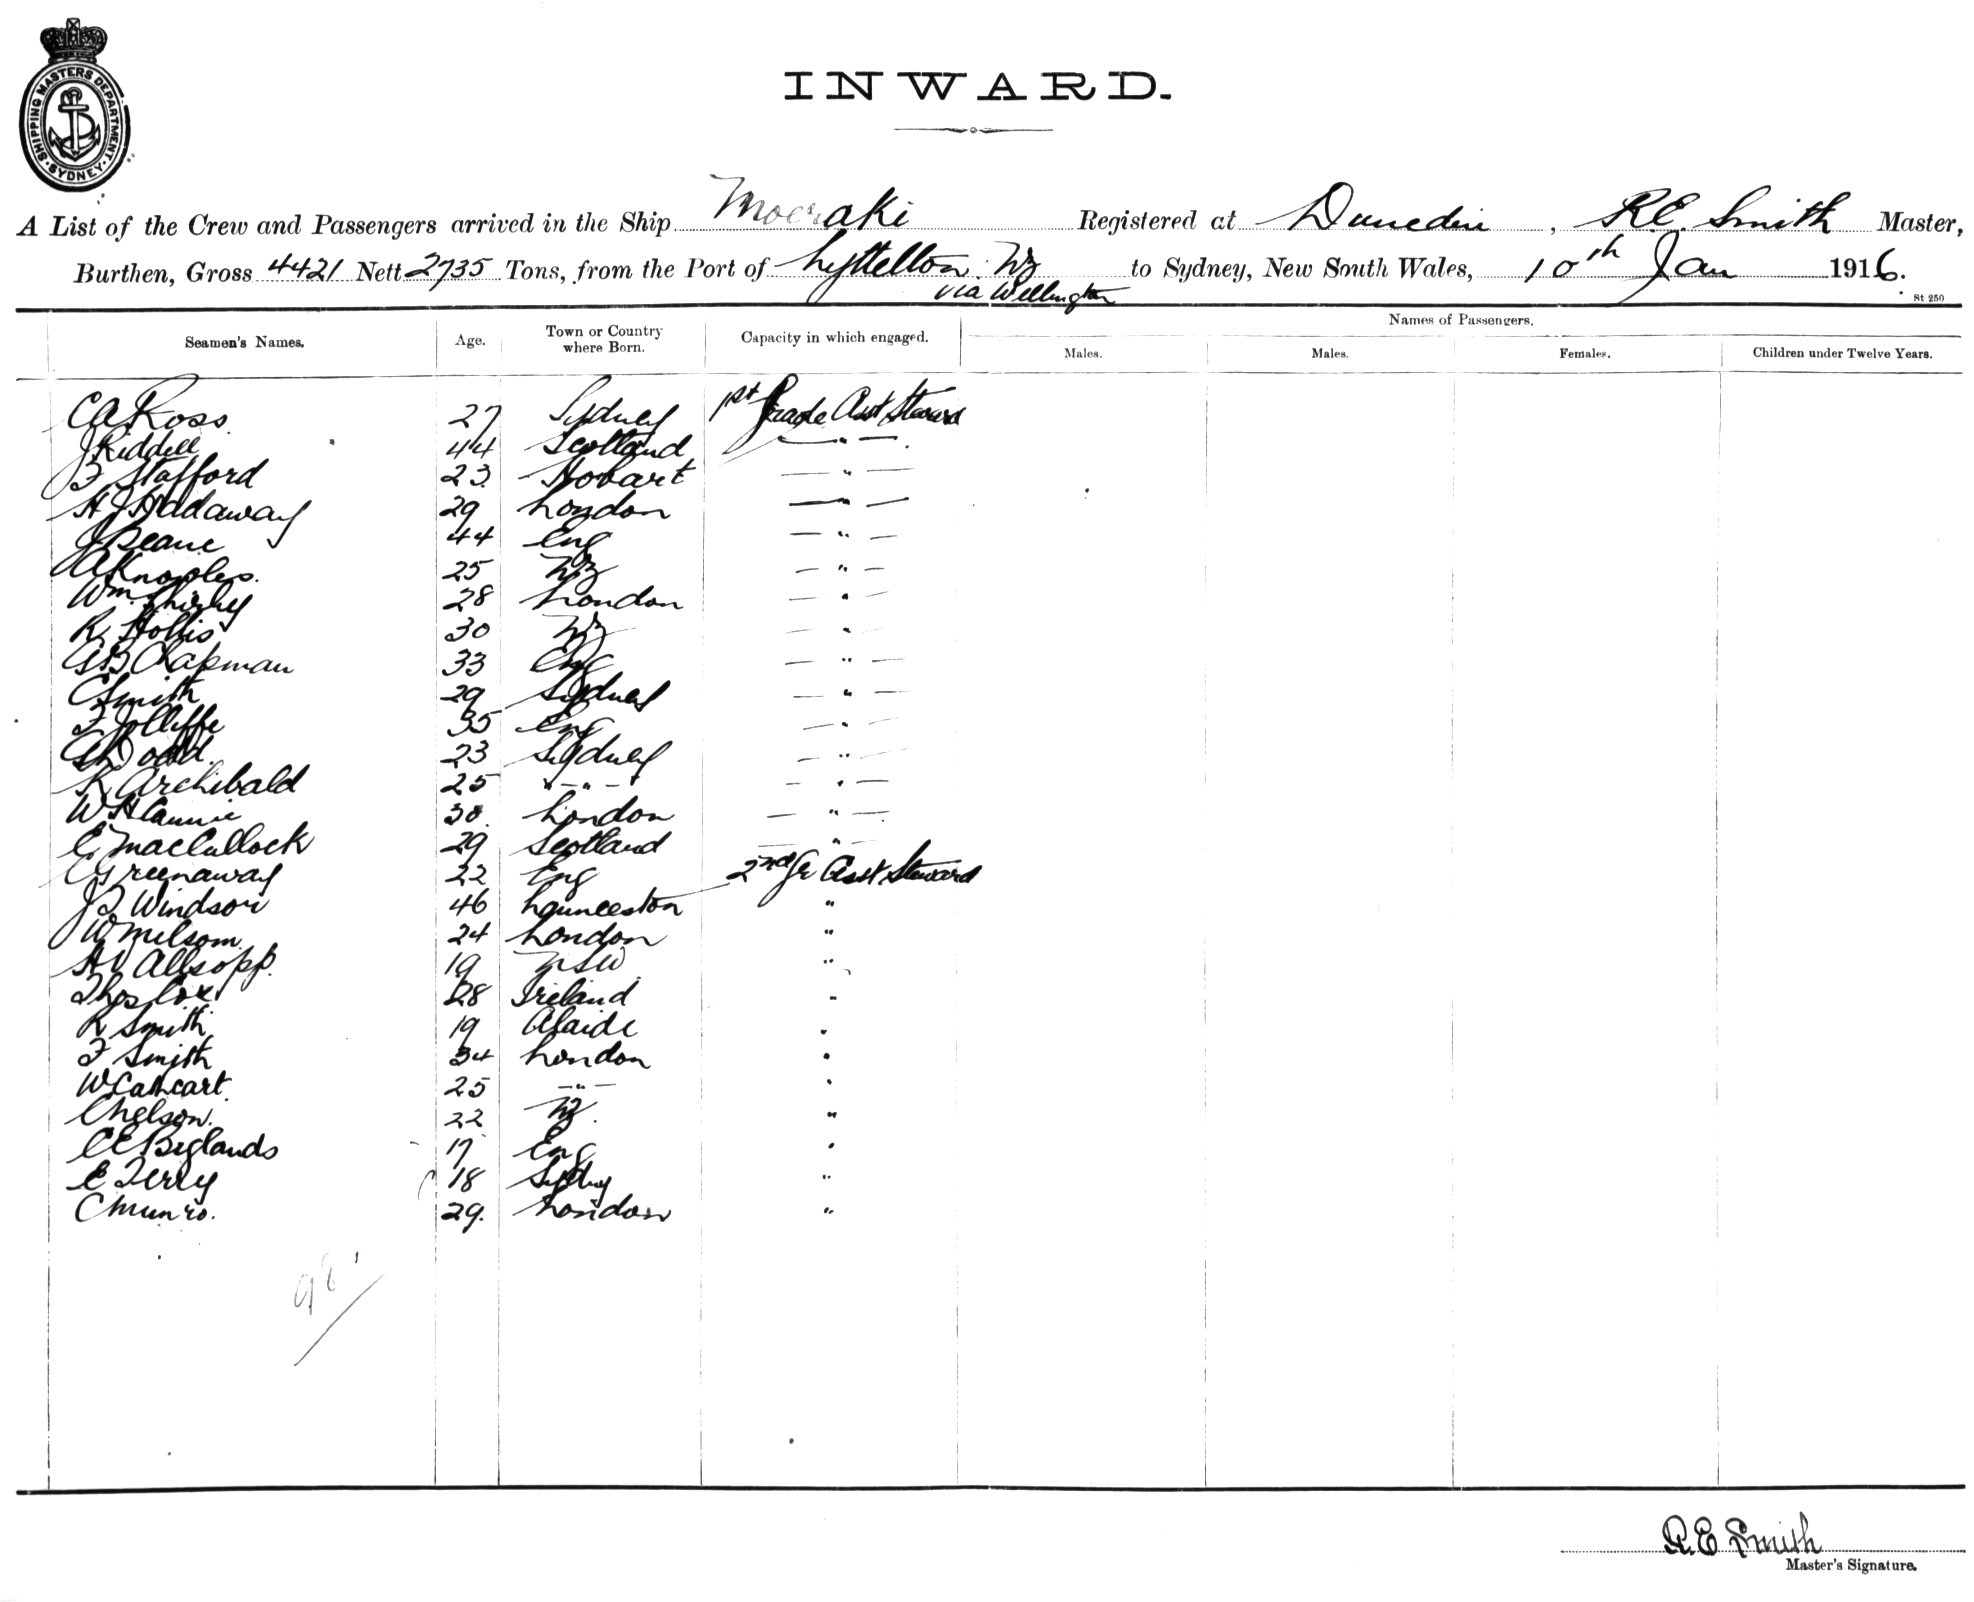 SHIPPING MASTERS DEPARTMENT. SYDNEY
INWARD.
A List of the Crew and Passengers arrived in the Ship Moeraki Registered at Dunedin, R.E. Smith Master,
Burthen, Gross 4421 Nett 2735 Tons, from the Port of Lyttelton NZ to Sydney, New South Wales, 10th Jan 1916.
via Wellington
St 250
Seamen's Names. Age. Town or Country where Born. Capacity in which engaged. Names of Passengers.
Males. Males. Females. Children under Twelve Years.
CA Ross 27 Sydney 1st Grade Asst Steward
J Riddell 44 Scotland — " —
F Stafford 23 Hobart — " —
H J Hadaway 29 London — " —
J Deane 44 Eng — " —
A Knowles. 25 NZ — " —
Wm. Shirley 28 London — " —
R Hollis 30 NZ — " —
GB Chapman 33 Eng — " —
C Smith 29 Sydney — " —
F Jolliffe 35 Eng — " —
Dodd. 23 Sydney — " —
R Archibald 25 " - " - " — " —
W H Cannie 30. London — " —
E MacCullock 29 Scotland — " —
C Greenaway 22 Eng 2nd Gr Asst Steward
J T Windsor 46 Launceston "
W Milsom 24 London "
H V Allsopp. 19 NSW "
Thos Cox 28 Ireland "
R Smith 19 Alaide "
F Smith 34 London "
W Cathcart. 25 — " — "
C Nelson. 22 NZ. "
C E Beglands 17 Eng "
E Terry 18 Sydny "
C Munro. 29. London "
98
R.E Smith
Master's Signature.